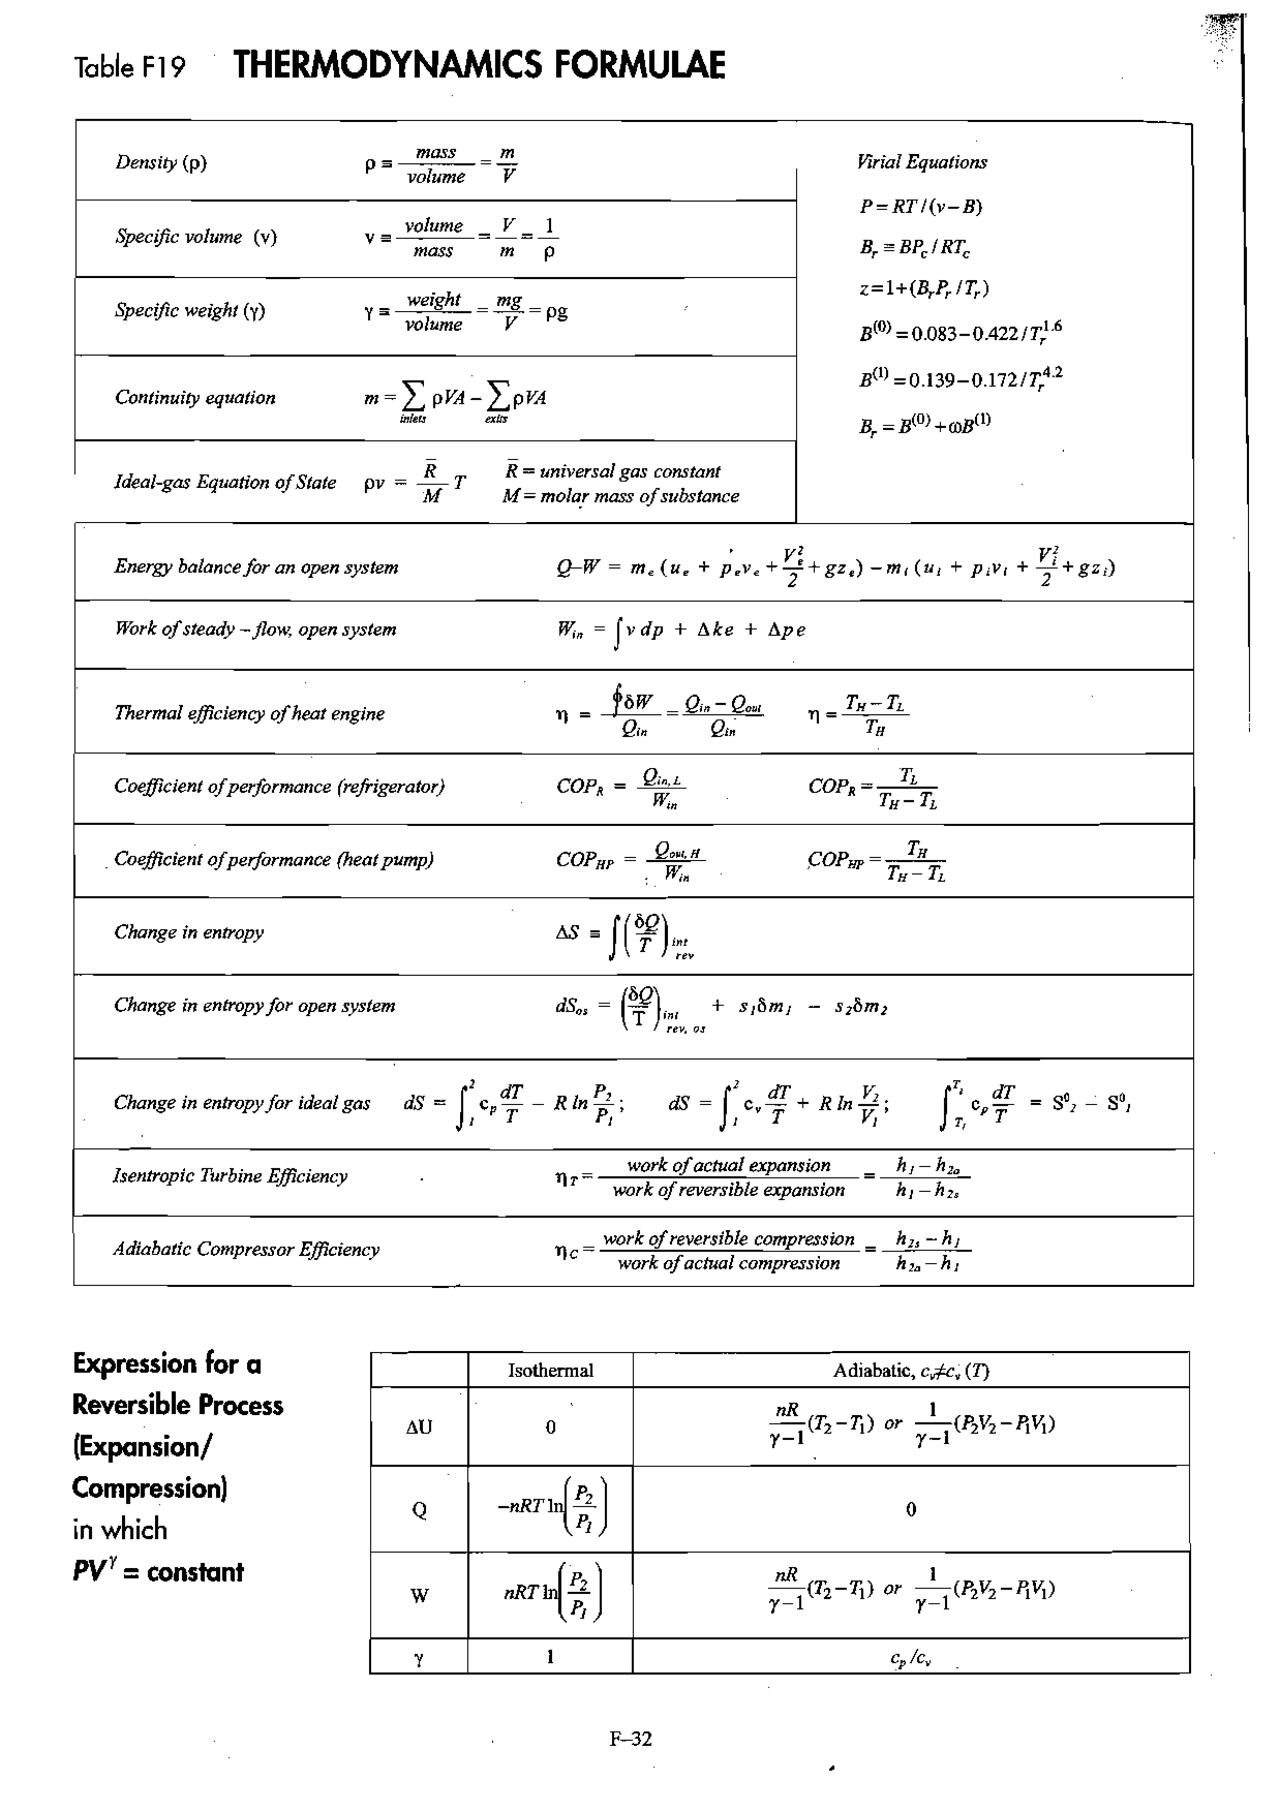 Table F19 THERMODYNAMICS FORMULAE
Density (ρ) ρ ≡ mass/volume = m/V
Specific volume (v) v ≡ volume/mass = V/m = 1/ρ
Specific weight (γ) γ ≡ weight/volume = mg/V = ρg
Continuity equation m = ∑ ρVA − ∑ ρVA
inlets exits
Ideal-gas Equation of State ρv = R̄/M T R̄ = universal gas constant
M = molar mass of substance
Virial Equations
P = RT/(v−B)
B_r ≡ BP_c/RT_c
z=1+(B_rP_r/T_r)
B^(0) = 0.083−0.422/T_r^1.6
B^(1) = 0.139−0.172/T_r^4.2
B_r = B^(0) + ωB^(1)
Energy balance for an open system Q–W = m_e (u_e + p_e v_e + V_e²/2 + gz_e) − m_i (u_i + p_i v_i + V_i²/2 + gz_i)
Work of steady – flow, open system W_in = ∫v dp + Δke + Δpe
Thermal efficiency of heat engine η = ∮δW/Q_in = (Q_in − Q_out)/Q_in η = (T_H − T_L)/T_H
Coefficient of performance (refrigerator) COP_R = Q_in,L/W_in COP_R = T_L/(T_H − T_L)
Coefficient of performance (heat pump) COP_HP = Q_out,H/W_in COP_HP = T_H/(T_H − T_L)
Change in entropy ΔS ≡ ∫(δQ/T) int rev
Change in entropy for open system dS_os = (δQ/T) int rev, os + s_1δm_1 − s_2δm_2
Change in entropy for ideal gas dS = ∫_1^2 c_p dT/T − R ln P_2/P_1; dS = ∫_1^2 c_v dT/T + R ln V_2/V_1; ∫ c_p dT/T = S⁰_2 − S⁰_1
Isentropic Turbine Efficiency η_T = work of actual expansion/work of reversible expansion = (h_1 − h_2a)/(h_1 − h_2s)
Adiabatic Compressor Efficiency η_C = work of reversible compression/work of actual compression = (h_2s − h_1)/(h_2a − h_1)
Expression for a
Reversible Process
(Expansion/
Compression)
in which
PV^γ = constant
Isothermal Adiabatic, c_v≠c_v (T)
ΔU 0 nR/(γ−1) (T_2−T_1) or 1/(γ−1) (P_2V_2−P_1V_1)
Q −nRT ln(P_2/P_1) 0
W nRT ln(P_2/P_1) nR/(γ−1) (T_2−T_1) or 1/(γ−1) (P_2V_2−P_1V_1)
γ 1 c_p/c_v
F–32